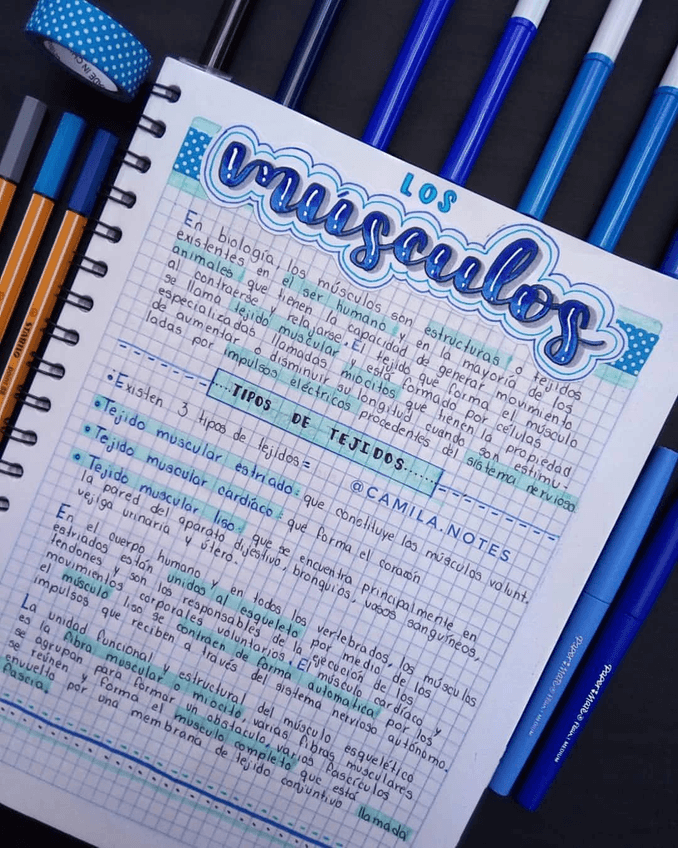 LOS
músculos
En biología los músculos son estructuras o tejidos
existentes en el ser humano y en la mayoría de los
animales que tienen la capacidad de generar movimiento
al contraerse y relajarse. El tejido que forma el músculo
se llama tejido muscular y está formado por células
especializadas llamadas miocitos que tienen la propiedad
de aumentar o disminuir su longitud cuando son estimu-
ladas por impulsos eléctricos procedentes del sistema nervioso
TIPOS DE TEJIDOS
•Existen 3 tipos de tejidos=
@CAMILA.NOTES
•Tejido muscular estriado: que constituye los músculos volunt.
•Tejido muscular cardíaco: que forma el corazón
•Tejido muscular liso: que se encuentra principalmente en
la pared del aparato digestivo, bronquios, vasos sanguíneos,
vejiga urinaria y útero.
En el cuerpo humano y en todos los vertebrados, los músculos
estriados están unidos al esqueleto por medio de los
tendones y son los responsables de la ejecución de los
movimientos corporales voluntarios. El músculo cardíaco y
el músculo liso se contraen de forma automática por los
impulsos que reciben a través del sistema nervioso autónomo.
La unidad funcional y estructural del músculo esquelético
es la fibra muscular o miocito, varias fibras musculares
se agrupan para formar un obstáculo, varios fascículos
se reúnen y forma el músculo completo que está
envuelto por una membrana de tejido conjuntivo llamada
fascia.
Paper Mate® Flair. Medium
Paper Mate® Flair. Medium
STABILO
MADE IN